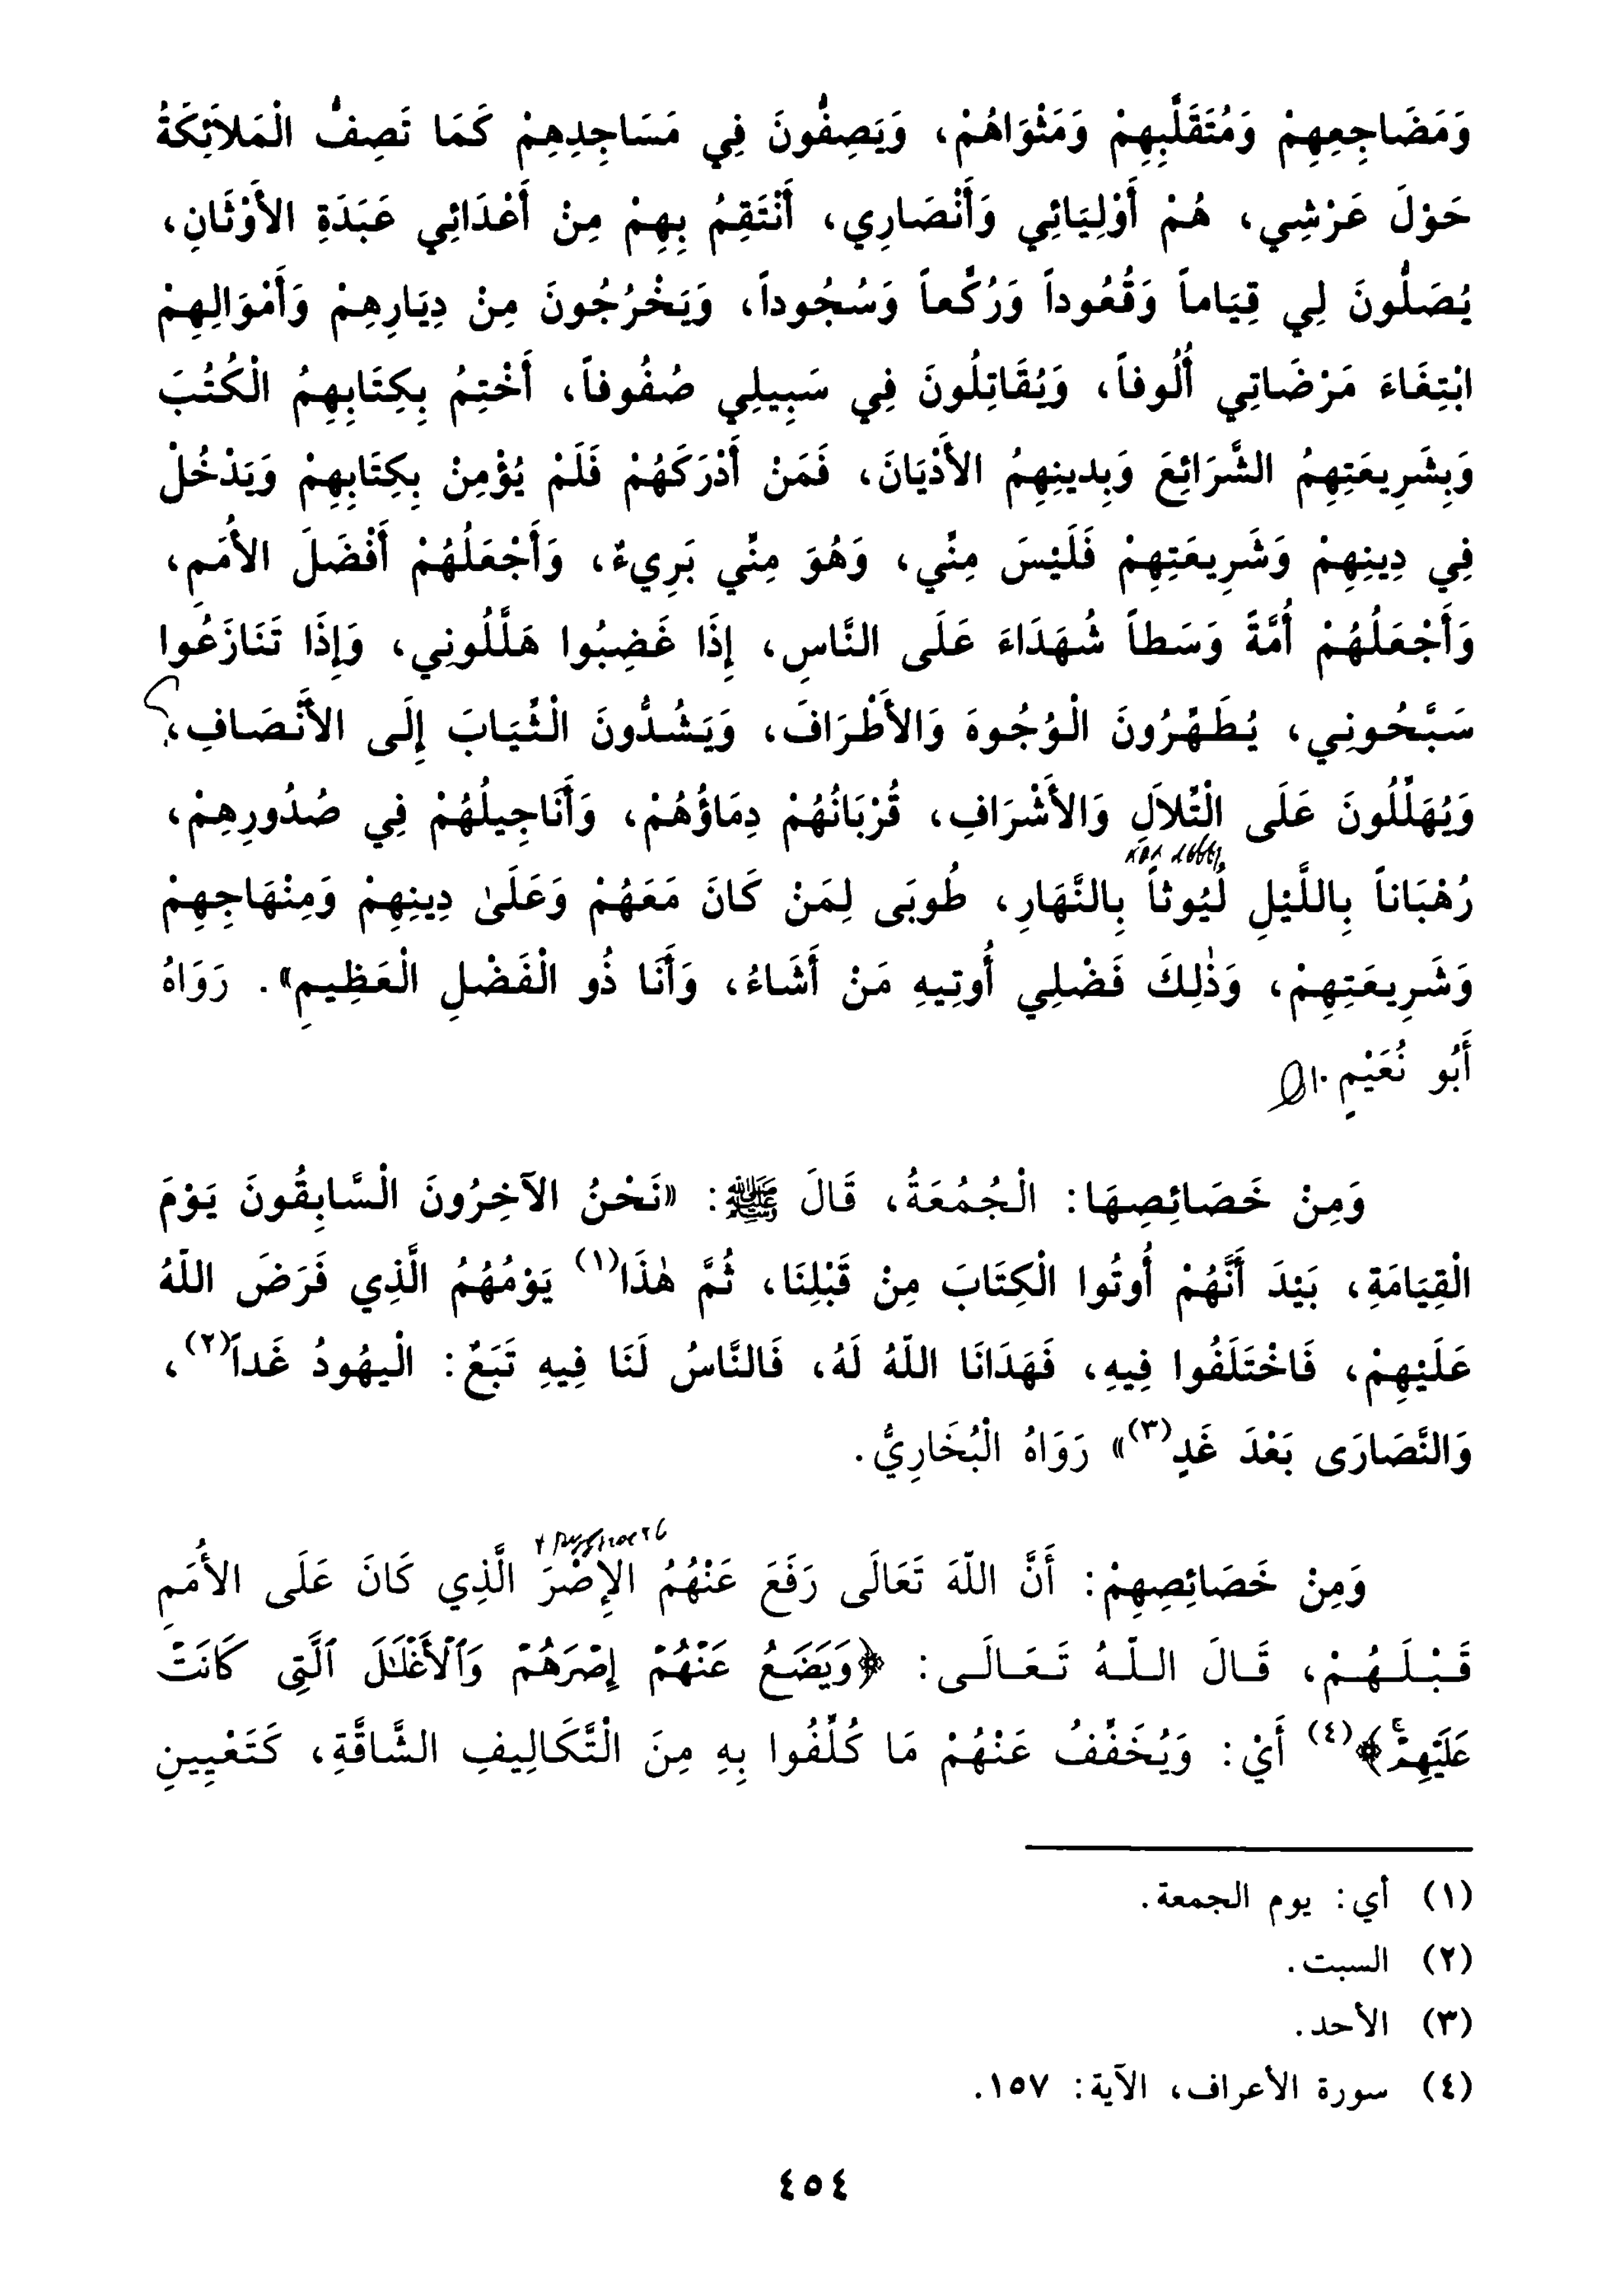 وَمَضَاجِعِهِمْ وَمُتَقَلَّبِهِمْ وَمَثْوَاهُمْ، وَيَصِفُّونَ فِي مَسَاجِدِهِمْ كَمَا تَصِفُّ الْمَلاَئِكَةُ
حَوْلَ عَرْشِي، هُمْ أَوْلِيَائِي وَأَنْصَارِي، أَنْتَقِمُ بِهِمْ مِنْ أَعْدَائِي عَبَدَةِ الأَوْثَانِ،
يُصَلُّونَ لِي قِيَاماً وَقُعُوداً وَرُكَّعاً وَسُجُوداً، وَيَخْرُجُونَ مِنْ دِيَارِهِمْ وَأَمْوَالِهِمْ
ابْتِغَاءَ مَرْضَاتِي أُلُوفاً، وَيُقَاتِلُونَ فِي سَبِيلِي صُفُوفاً، أَخْتِمُ بِكِتَابِهِمُ الْكُتُبَ
وَبِشَرِيعَتِهِمُ الشَّرَائِعَ وَبِدينِهِمُ الأَدْيَانَ، فَمَنْ أَدْرَكَهُمْ فَلَمْ يُؤْمِنْ بِكِتَابِهِمْ وَيَدْخُلْ
فِي دِينِهِمْ وَشَرِيعَتِهِمْ فَلَيْسَ مِنِّي، وَهُوَ مِنِّي بَرِيءٌ، وَأَجْعَلُهُمْ أَفْضَلَ الأُمَمِ،
وَأَجْعَلُهُمْ أُمَّةً وَسَطاً شُهَدَاءَ عَلَى النَّاسِ، إِذَا غَضِبُوا هَلَّلُونِي، وَإِذَا تَنَازَعُوا
سَبَّحُونِي، يُطَهِّرُونَ الْوُجُوهَ وَالأَطْرَافَ، وَيَشُدُّونَ الْثِّيَابَ إِلَى الأَنْصَافِ،
وَيُهَلِّلُونَ عَلَى الْتِّلاَلِ وَالأَشْرَافِ، قُرْبَانُهُمْ دِمَاؤُهُمْ، وَأَنَاجِيلُهُمْ فِي صُدُورِهِمْ،
رُهْبَاناً بِاللَّيْلِ لُيُوثاً بِالنَّهَارِ، طُوبَى لِمَنْ كَانَ مَعَهُمْ وَعَلَىٰ دِينِهِمْ وَمِنْهَاجِهِمْ
وَشَرِيعَتِهِمْ، وَذٰلِكَ فَضْلِي أُوتِيهِ مَنْ أَشَاءُ، وَأَنَا ذُو الْفَضْلِ الْعَظِيمِ». رَوَاهُ
أَبُو نُعَيْمٍ.
وَمِنْ خَصَائِصِهَا: الْجُمُعَةُ، قَالَ ﷺ: «نَحْنُ الآخِرُونَ الْسَّابِقُونَ يَوْمَ
الْقِيَامَةِ، بَيْدَ أَنَّهُمْ أُوتُوا الْكِتَابَ مِنْ قَبْلِنَا، ثُمَّ هٰذَا(١) يَوْمُهُمُ الَّذِي فَرَضَ اللّهُ
عَلَيْهِمْ، فَاخْتَلَفُوا فِيهِ، فَهَدَانَا اللّهُ لَهُ، فَالنَّاسُ لَنَا فِيهِ تَبَعٌ: الْيهُودُ غَداً(٢)،
وَالنَّصَارَى بَعْدَ غَدٍ(٣)» رَوَاهُ الْبُخَارِيُّ.
وَمِنْ خَصَائِصِهِمْ: أَنَّ اللّهَ تَعَالَى رَفَعَ عَنْهُمُ الإِصْرَ الَّذِي كَانَ عَلَى الأُمَمِ
قَبْلَهُمْ، قَالَ اللّهُ تَعَالَى: ﴿وَيَضَعُ عَنْهُمْ إِصْرَهُمْ وَٱلْأَغْلَٰلَ ٱلَّتِى كَانَتْ
عَلَيْهِمْ﴾(٤) أَيْ: وَيُخَفِّفُ عَنْهُمْ مَا كُلِّفُوا بِهِ مِنَ الْتَّكَالِيفِ الشَّاقَّةِ، كَتَعْيِينِ
(١) أي: يوم الجمعة.
(٢) السبت.
(٣) الأحد.
(٤) سورة الأعراف، الآية: ١٥٧.
٤٥٤